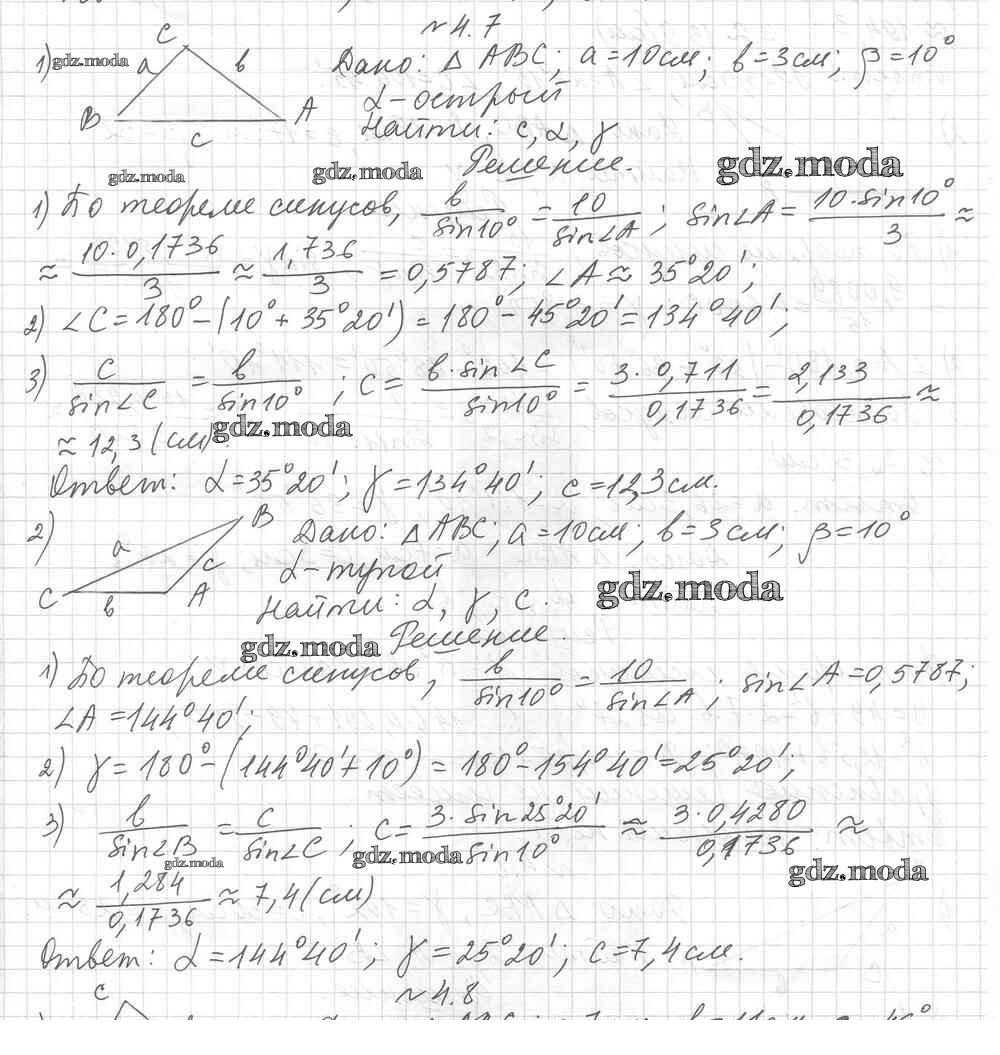 № 4.7
1) Дано: △ ABC; a=10см; b=3см; β=10°
gdz.moda
C
a b
B A
c
α-острый
Найти: c, α, γ
Решение.
gdz.moda gdz.moda gdz.moda
1) По теореме синусов, b/sin10° = 10/sin∠A; sin∠A = 10·sin10°/3 ≈
≈ 10·0,1736/3 ≈ 1,736/3 = 0,5787; ∠A ≈ 35°20';
2) ∠C = 180° - (10° + 35°20') = 180° - 45°20' = 134°40';
3) c/sin∠C = b/sin10°; c = b·sin∠C/sin10° = 3·0,711/0,1736 = 2,133/0,1736 ≈
gdz.moda
≈ 12,3 (см).
Ответ: α=35°20'; γ=134°40'; c=12,3см.
2) Дано: △ABC; a=10см; b=3см; β=10°
B
a c
C b A
α-тупой
gdz.moda
Найти: α, γ, c.
Решение.
gdz.moda
1) По теореме синусов, b/sin10° = 10/sin∠A; sin∠A=0,5787;
∠A = 144°40';
2) γ = 180° - (144°40' + 10°) = 180° - 154°40' = 25°20';
3) b/sin∠B = c/sin∠C; c = 3·sin25°20'/sin10° ≈ 3·0,4280/0,1736 ≈
gdz.moda gdz.moda gdz.moda
≈ 1,284/0,1736 ≈ 7,4 (см)
Ответ: α=144°40'; γ=25°20'; c=7,4см.
№ 4.8
C